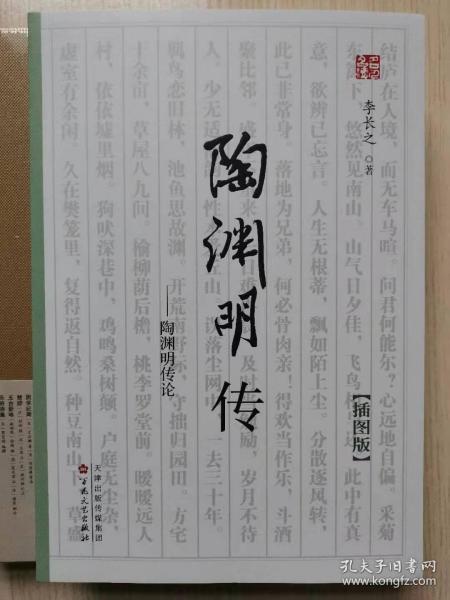 李长之 ◎著
陶渊明传
——陶渊明传论
【插图版】
结庐在人境，而无车马喧。问君何能尔？心远地自偏。采菊
东篱下，悠然见南山。山气日夕佳，飞鸟相与还。此中有真
意，欲辨已忘言。人生无根蒂，飘如陌上尘。分散逐风转，
此已非常身。落地为兄弟，何必骨肉亲！得欢当作乐，斗酒
聚比邻。盛 来 日 及 励，岁月不待
人。少无适 性 丘山。误落尘网 一去三十年。
羁鸟恋旧林，池鱼思故渊。开荒南野际，守拙归园田。方宅
十余亩，草屋八九间。榆柳荫后檐，桃李罗堂前。暧暧远人
村，依依墟里烟。狗吠深巷中，鸡鸣桑树颠。户庭无尘杂，
虚室有余闲。久在樊笼里，复得返自然。种豆南山下，草盛
天津出版传媒集团
百花文艺出版社
孔夫子旧书网